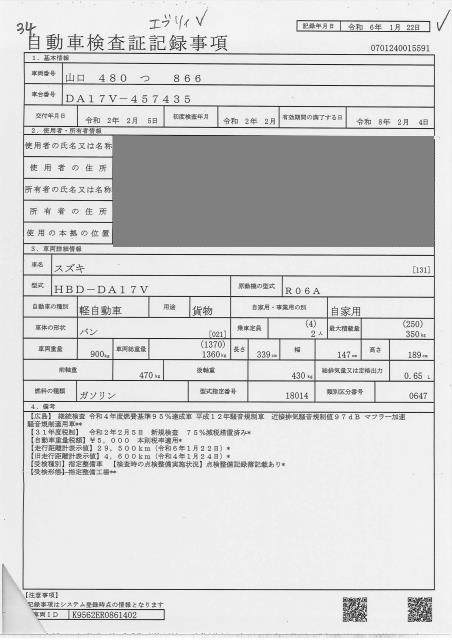 34.
エブリィ ✓
記録年月日 令和 6年 1月 22日
✓
自動車検査証記録事項
0701240015591
1. 基本情報
車両番号 山口 480 つ 866
車台番号 DA17V-457435
交付年月日 令和 2年 2月 5日 初度検査年月 令和 2年 2月 有効期間の満了する日 令和 8年 2月 4日
2. 使用者・所有者情報
使用者の氏名又は名称
使用者の住所
所有者の氏名又は名称
所有者の住所
使用の本拠の位置
3. 車両詳細情報
車名 スズキ [131]
型式 HBD-DA17V 原動機の型式 R06A
自動車の種別 軽自動車 用途 貨物 自家用・事業用の別 自家用
車体の形状 バン [021] 乗車定員 (4) 2人 最大積載量 (250) 350kg
車両重量 900kg 車両総重量 (1370) 1360kg 長さ 339cm 幅 147cm 高さ 189cm
前前軸重 470kg 後後軸重 430kg 総排気量又は定格出力 0.65 L
燃料の種類 ガソリン 型式指定番号 18014 類別区分番号 0647
4. 備考
【広島】 継続検査 令和4年度燃費基準95%達成車 平成12年騒音規制車 近接排気騒音規制値97dB マフラー加速
騒音規制適用車**
【31年度税制】 令和2年2月5日 新規検査 75%減税措置済み*
【自動車重量税額】￥5,000 本則税率適用*
【走行距離計表示値】29,500km(令和6年1月22日)*
【旧走行距離計表示値】4,600km(令和4年1月24日)*
【受検種別】指定整備車 【検査時の点検整備実施状況】点検整備記録簿記載あり*
【受検形態】指定整備工場**
【注意事項】
記録事項はシステム登録時点の情報となります
車両ID K9562ER0861402